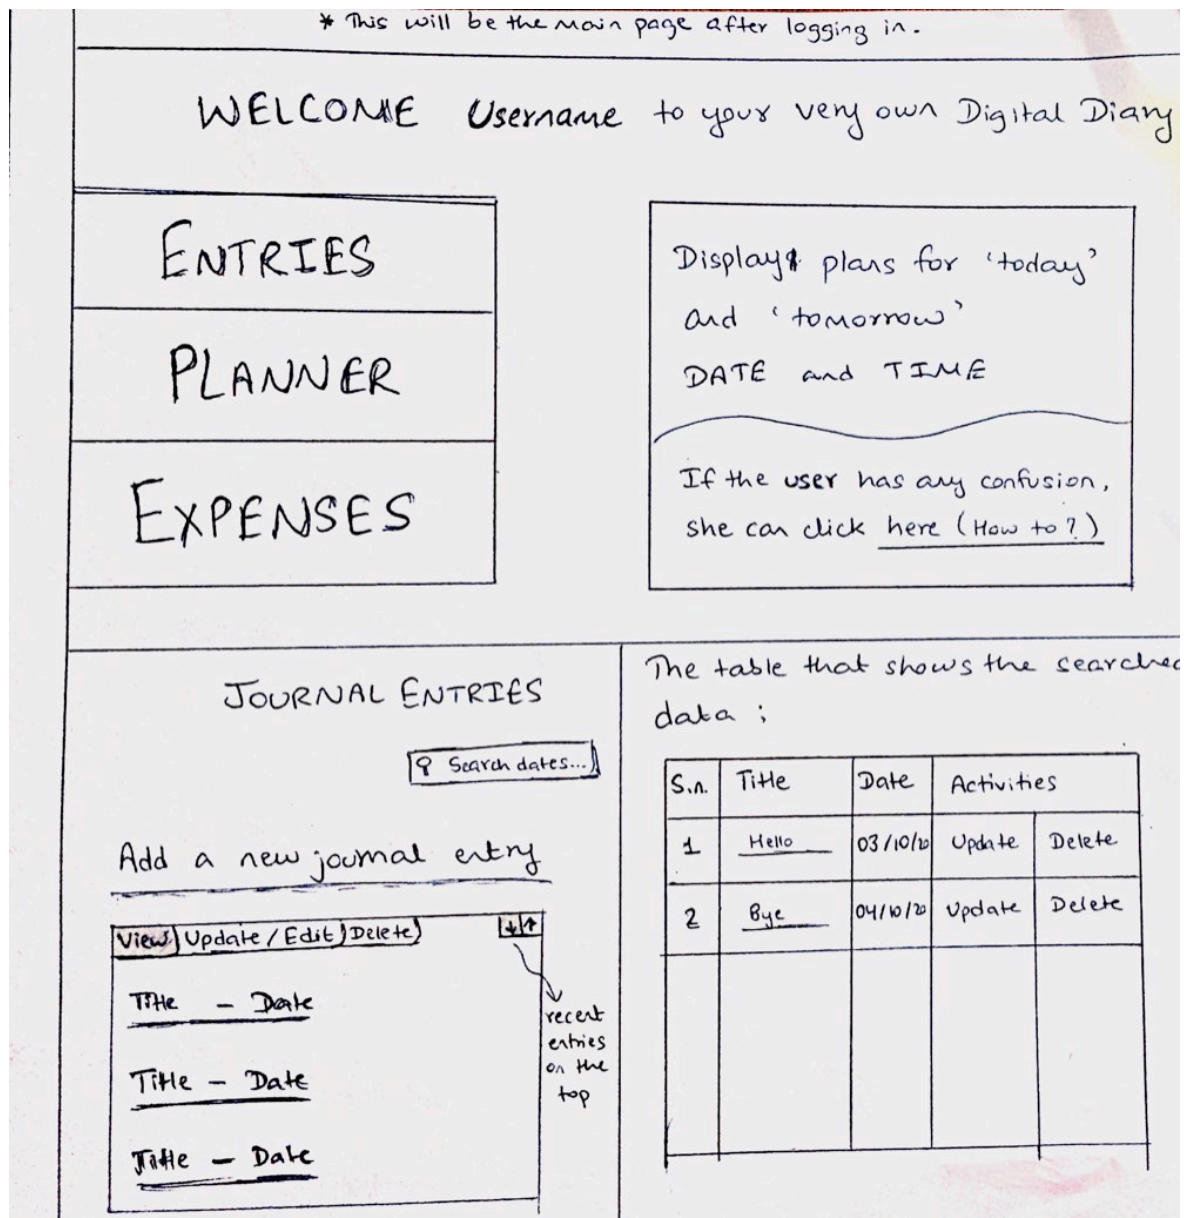 * This will be the main page after logging in.
WELCOME Username to your very own Digital Diary
ENTRIES
PLANNER
EXPENSES
Display plans for 'today'
and 'tomorrow'
DATE and TIME
If the user has any confusion,
she can click here (How to?)
JOURNAL ENTRIES
Search dates...
Add a new journal entry
View Update / Edit Delete ↓ ↑
Title - Date
Title - Date
Title - Date
recent
entries
on the
top
The table that shows the searched
data :
S.n. Title Date Activities
1 Hello 03/10/20 Update Delete
2 Bye 04/10/20 Update Delete